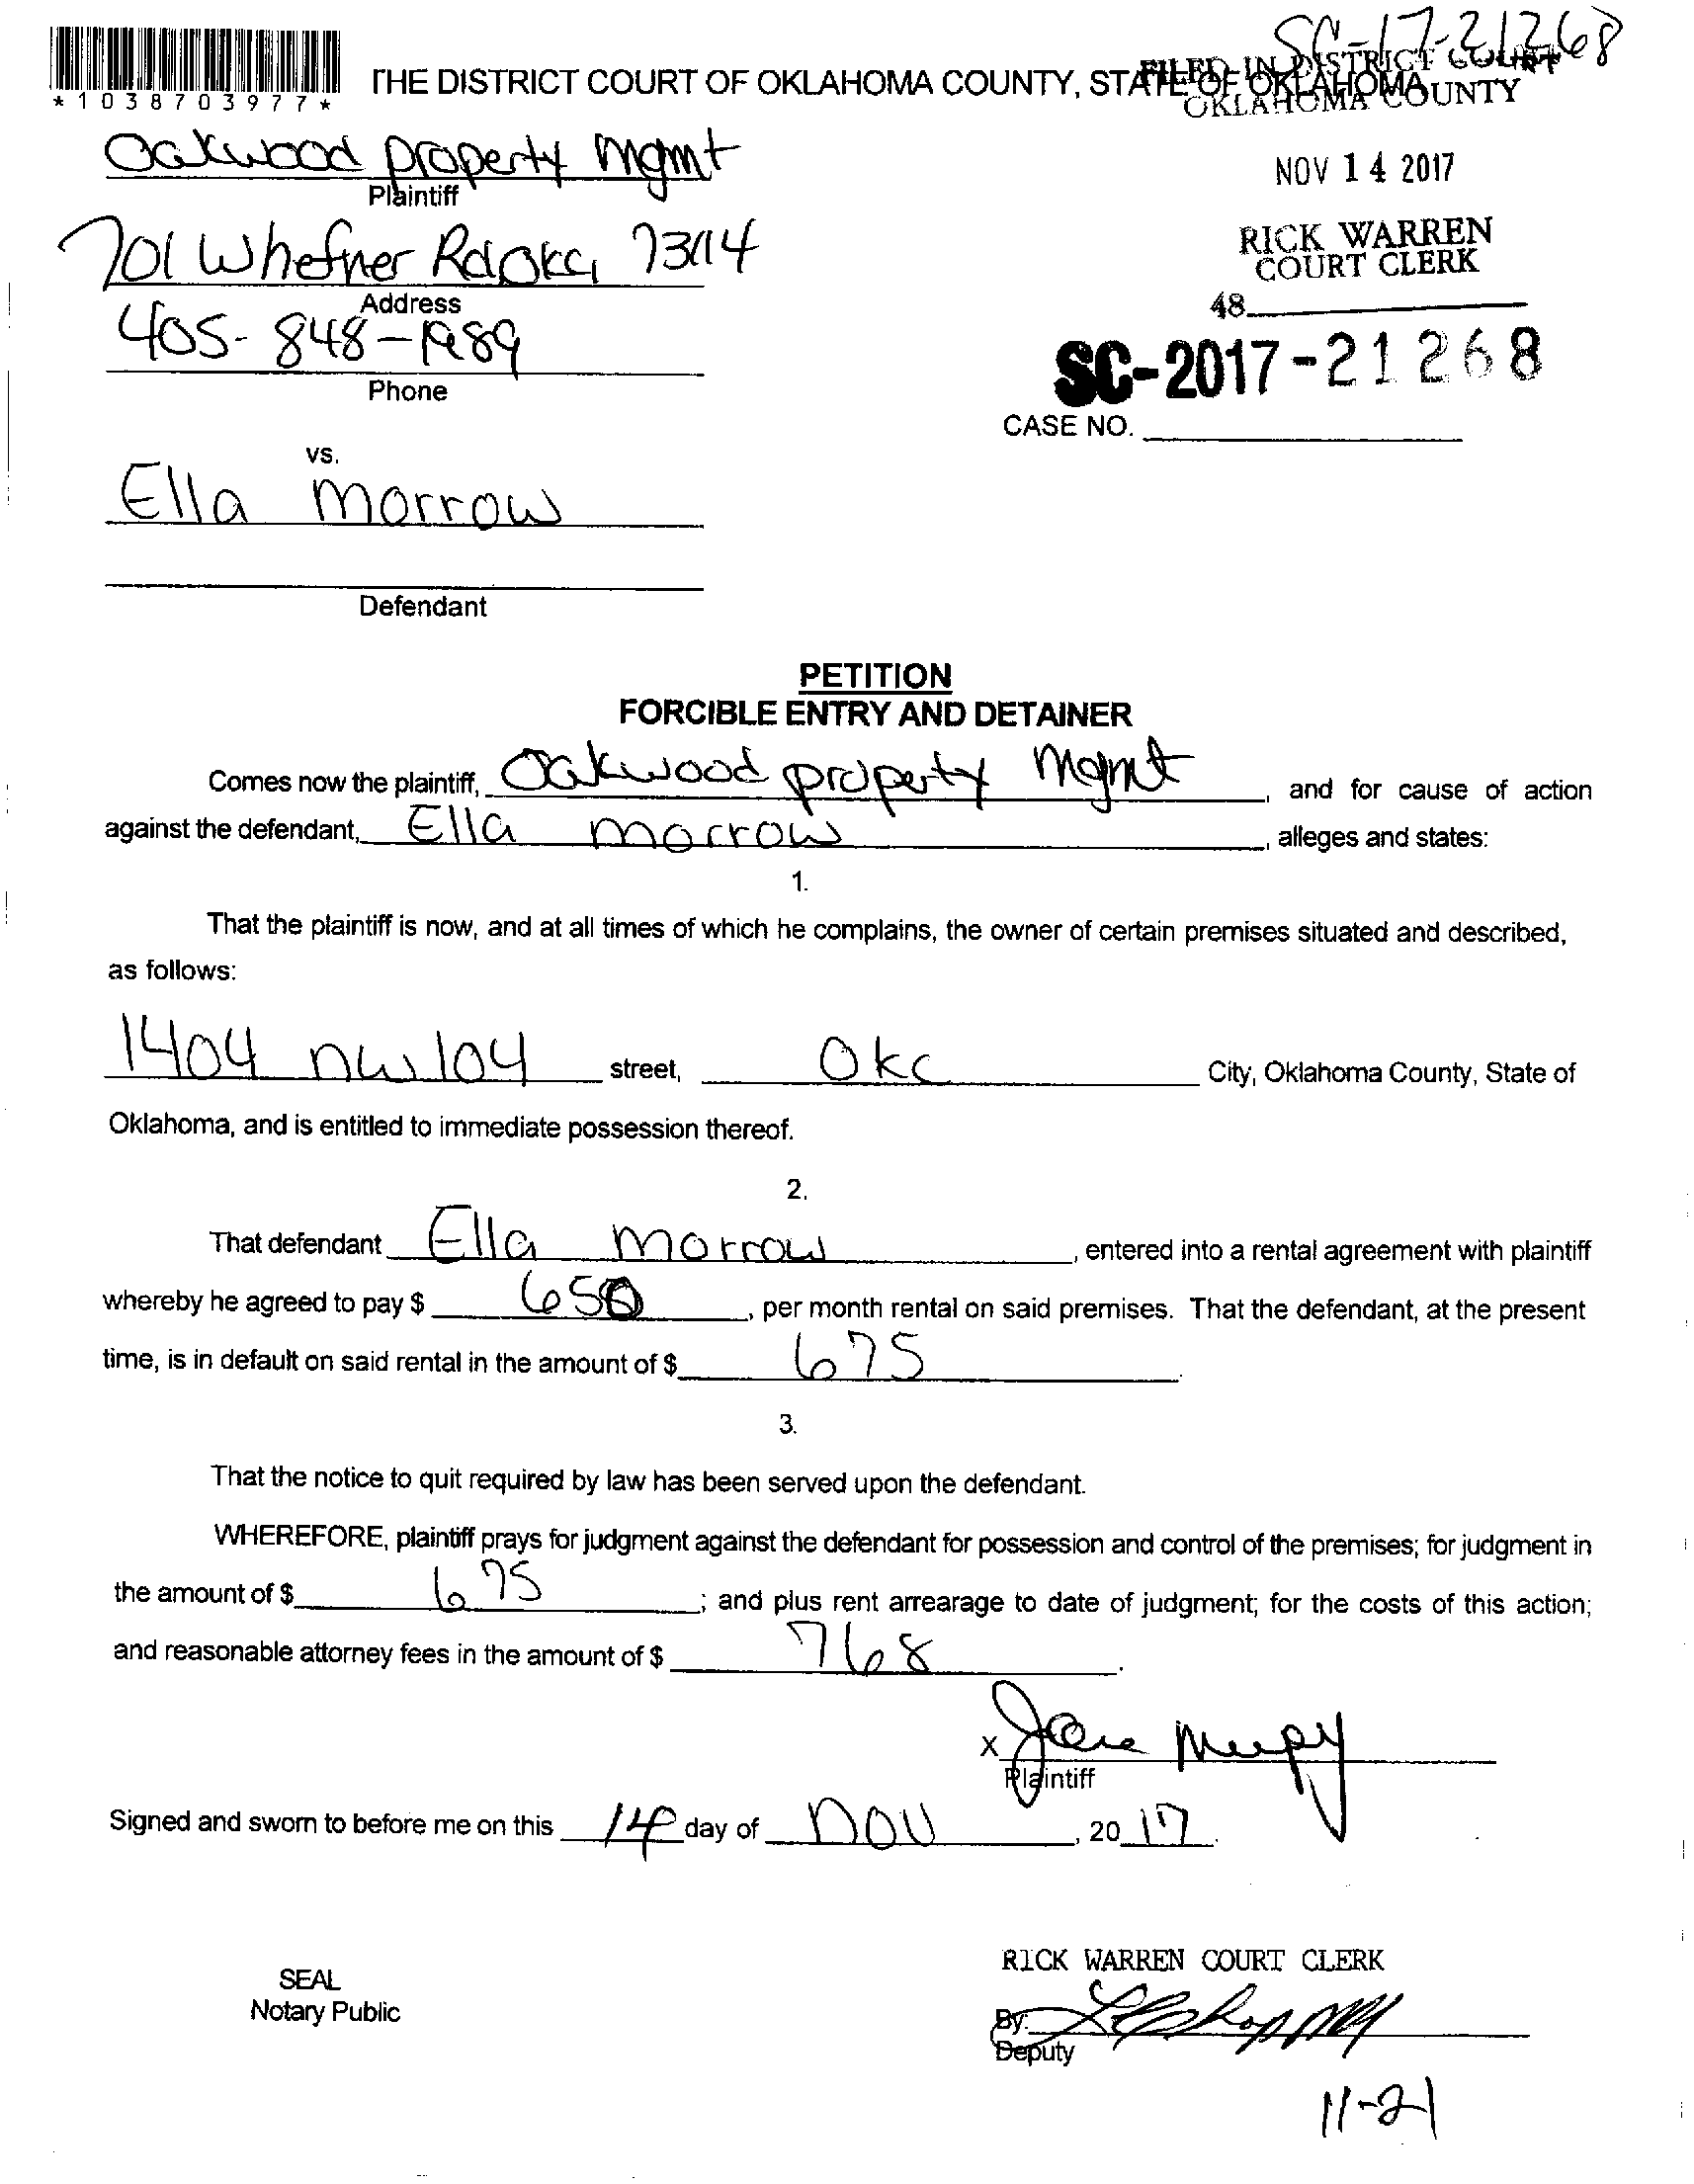 SC-17-21268
THE DISTRICT COURT OF OKLAHOMA COUNTY, STATE OF OKLAHOMA
FILED IN DISTRICT COURT
OKLAHOMA COUNTY
*1038703977*
Oakwood property mgmt
Plaintiff
NOV 14 2017
701 Whefner Rd Okc, 73114
RICK WARREN
COURT CLERK
Address
48
405-848-1989
SC-2017-21268
Phone
CASE NO.
vs.
Ella Morrow
Defendant
PETITION
FORCIBLE ENTRY AND DETAINER
Comes now the plaintiff, Oakwood property Mgmt, and for cause of action
against the defendant, Ella Morrow, alleges and states:
1.
That the plaintiff is now, and at all times of which he complains, the owner of certain premises situated and described,
as follows:
1404 nw 104 street, Okc City, Oklahoma County, State of
Oklahoma, and is entitled to immediate possession thereof.
2.
That defendant Ella Morrow, entered into a rental agreement with plaintiff
whereby he agreed to pay $ 650, per month rental on said premises. That the defendant, at the present
time, is in default on said rental in the amount of $ 675.
3.
That the notice to quit required by law has been served upon the defendant.
WHEREFORE, plaintiff prays for judgment against the defendant for possession and control of the premises; for judgment in
the amount of $ 675; and plus rent arrearage to date of judgment; for the costs of this action;
and reasonable attorney fees in the amount of $ 768.
X
Plaintiff
Signed and sworn to before me on this 14 day of NOV, 20 17.
RICK WARREN COURT CLERK
SEAL
Notary Public
By:
Deputy
11-21